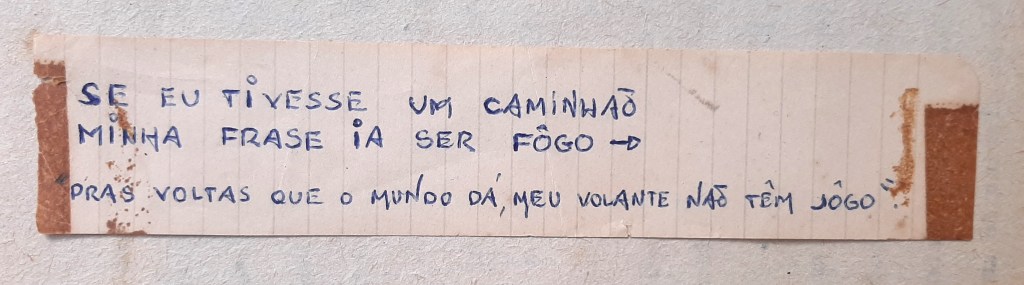 SE EU TIVESSE UM CAMINHAÕ
MINHA FRASE IA SER FÔGO →
"PRAS VOLTAS QUE O MUNDO DÁ, MEU VOLANTE NAÕ TÊM JÔGO".